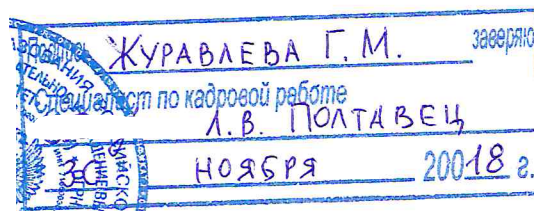 Подпись ЖУРАВЛЕВА Г. М. заверяю
Специалист по кадровой работе
Л. В. ПОЛТАВЕЦ
НОЯБРЯ 20018 г.